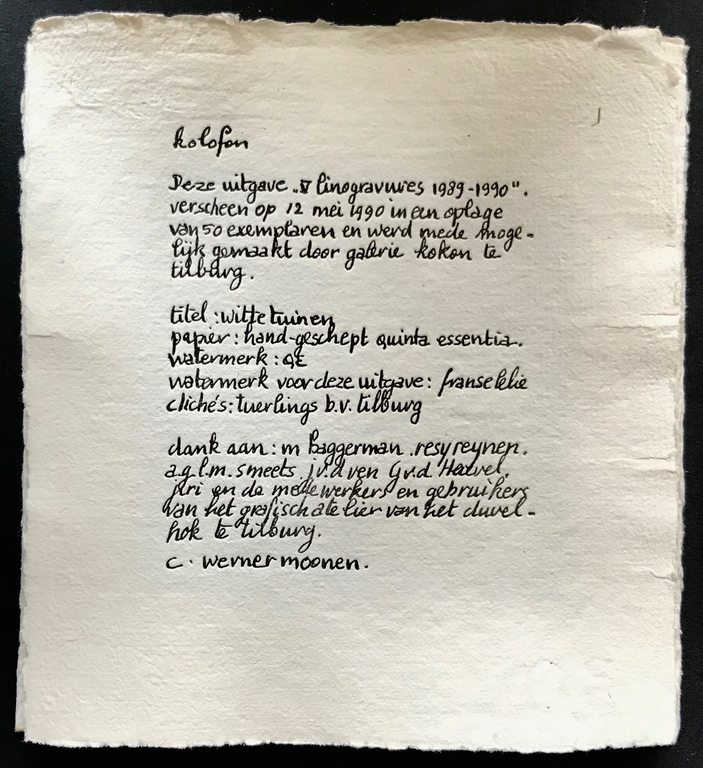 kolofon
Deze uitgave „V linogravures 1989-1990".
verscheen op 12 mei 1990 in een oplage
van 50 exemplaren en werd mede moge-
lijk gemaakt door galerie kokon te
tilburg.
titel : witte tuinen
papier : hand-geschept quinta essentia.
watermerk : QE
watermerk voor deze uitgave : franse lelie
cliché's : tuerlings b.v. tilburg
dank aan : m baggerman . resy reynen.
a.g.l.m. smeets j.v.d ven G v.d. Heuvel.
juri en de medewerkers en gebruikers
van het grafisch atelier van het duvel-
hok te tilburg.
c . werner moonen.